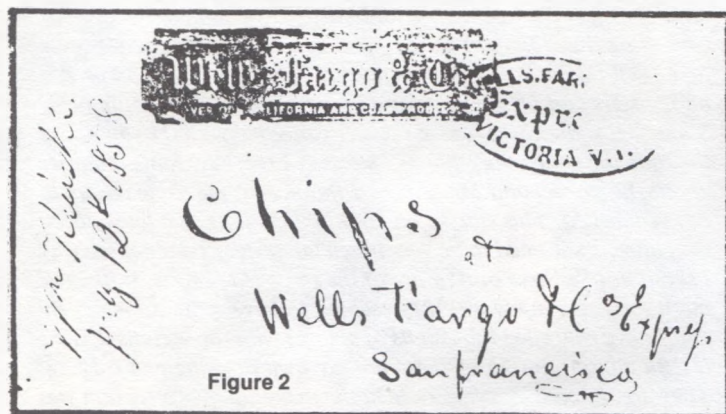 Wells, Fargo & Co
OVER OUR CALIFORNIA AND COAST ROUTES
LLS. FAR
Expre
VICTORIA V.I.
July 12th 1858
Chips
at
Wells Fargo & Cos Express
San francisco
Figure 2